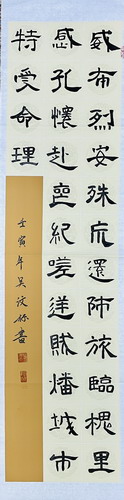 威布烈安殊荒還師旅臨槐里
感孔懷赴喪紀嗟逆賊燔城市
特受命理
壬寅年吴汶書